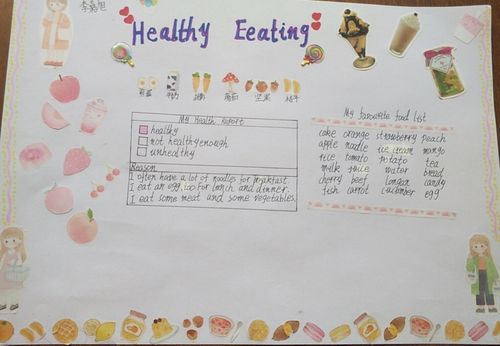 李嘉旭
Healthy Eeating
鸡蛋 牛奶 蘑菇 坚果 橘子
My Health Report
healthy
not healthy enough
unhealthy
Reason
I often have a lot of noodles for breakfast.
I eat an egg, too. For lunch and dinner,
I eat some meat and some vegetables.
My favourite food list
cake orange strawberry peach
apple noodle ice cream mango
rice tomato potato tea
milk juice water bread
cherry beef longan candy
fish carrot cucumber egg